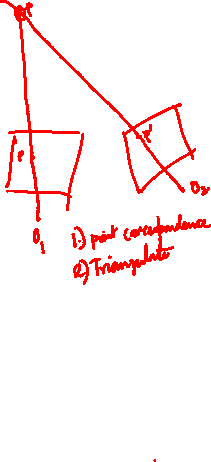 P
P P'
O₁ O₂
1.) point correspondence
2.) Triangulate